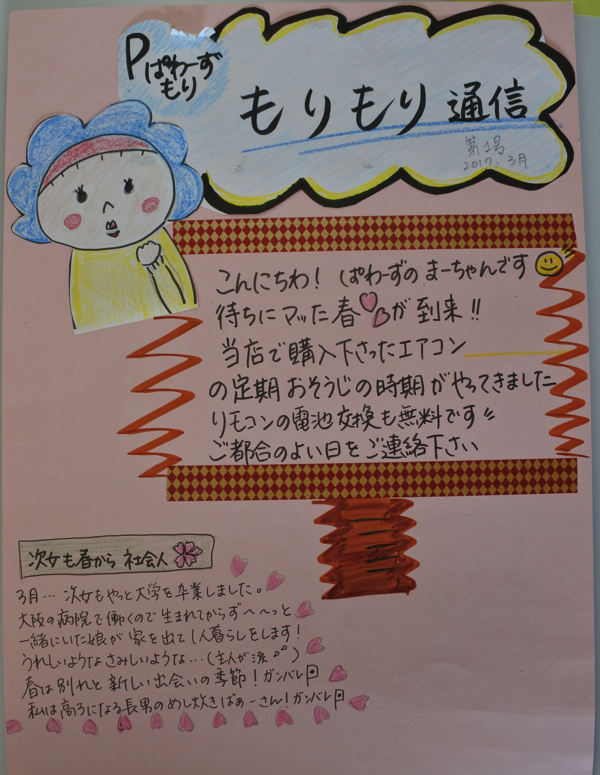 Pぱわーず
もり
もりもり通信
第1号
2017.3月
こんにちわ! ぱわーずのまーちゃんです
待ちにマッた春が到来!!
当店で購入下さったエアコン
の定期おそうじの時期がやってきました
リモコンの電池交換も無料です!!
ご都合のよい日をご連絡下さい
次女も春から社会人
3月… 次女もやっと大学を卒業しました。
大阪の病院で働くので生まれてからず〜〜っと
一緒にいた娘が家を出て1人暮らしをします!
うれしいようなさみしいような…(主人が涙)
春は別れと新しい出会いの季節!ガンバレ
私は高3になる長男のめし炊きばぁーさん!ガンバレ